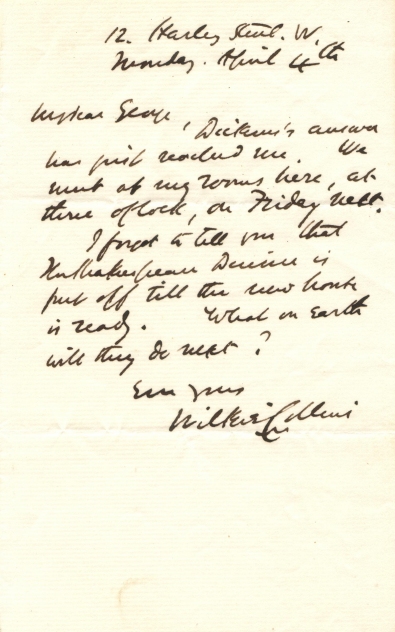 12. Harley Street. W.
Monday. April 4th
My dear George,
Dickens's answer
has just reached me. We
meet at my rooms here, at
three o'clock, on Friday next.
I forgot to tell you that
the Shakespeare Dinner is
put off till the new house
is ready. What on Earth
will they do next?
Ever yours
Wilkie Collins